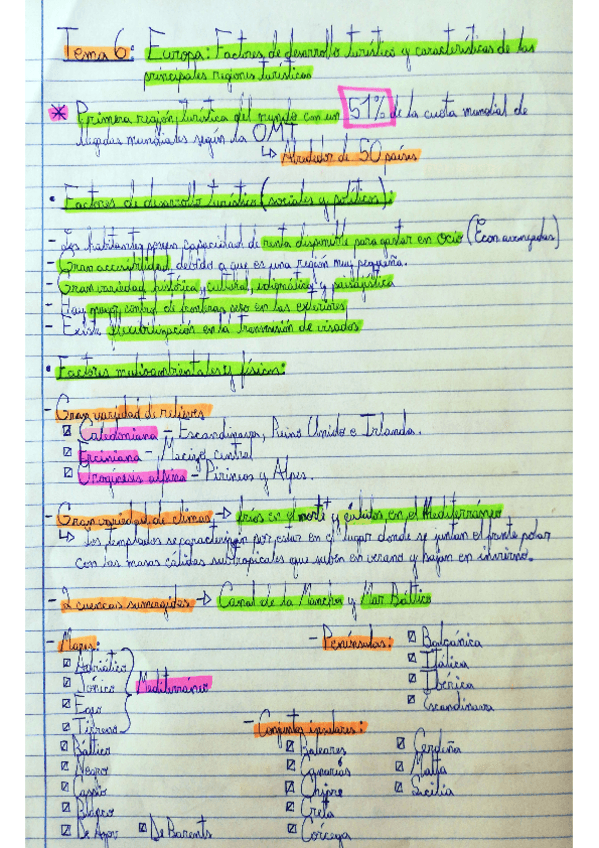 Tema 6: Europa: Factores de desarrollo turístico y características de las
principales regiones turísticas
* Primera región turística del mundo con un 51% de la cuota mundial de
llegadas mundiales según la OMT
↳ Alrededor de 50 países
• Factores de desarrollo turístico (sociales y políticos):
- Los habitantes poseen capacidad de renta disponible para gastar en ocio (Econ avanzadas)
- Gran accesibilidad debido a que es una región muy pequeña.
- Gran variedad histórica, cultural, idiomática y paisajística
- Hay mayor control de fronteras pero en las exteriores
- Existe flexibilización en la transmisión de visados
• Factores medioambientales y físicos:
- Gran variedad de relieves
Caledoniana - Escandinavia, Reino Unido e Irlanda.
Erciniana - Macizo central
Orogénesis alpina - Pirineos y Alpes.
- Gran variedad de climas → fríos en el norte y cálidos en el Mediterráneo
↳ Los templados se caracterizan por estar en el lugar donde se juntan el frente polar
con las masas cálidas subtropicales que suben en verano y bajan en invierno.
- 2 cuencas sumergidas → Canal de la Mancha y Mar Báltico
- Mares:
Adriático
Jónico
Egeo
Tirreno
Mediterráneo
Báltico
Negro
Caspio
Blanco
De Azov
De Barents
- Penínsulas:
Balcánica
Itálica
Ibérica
Escandinava
- Conjuntos insulares:
Baleares
Canarias
Chipre
Creta
Córcega
Cerdeña
Malta
Sicilia